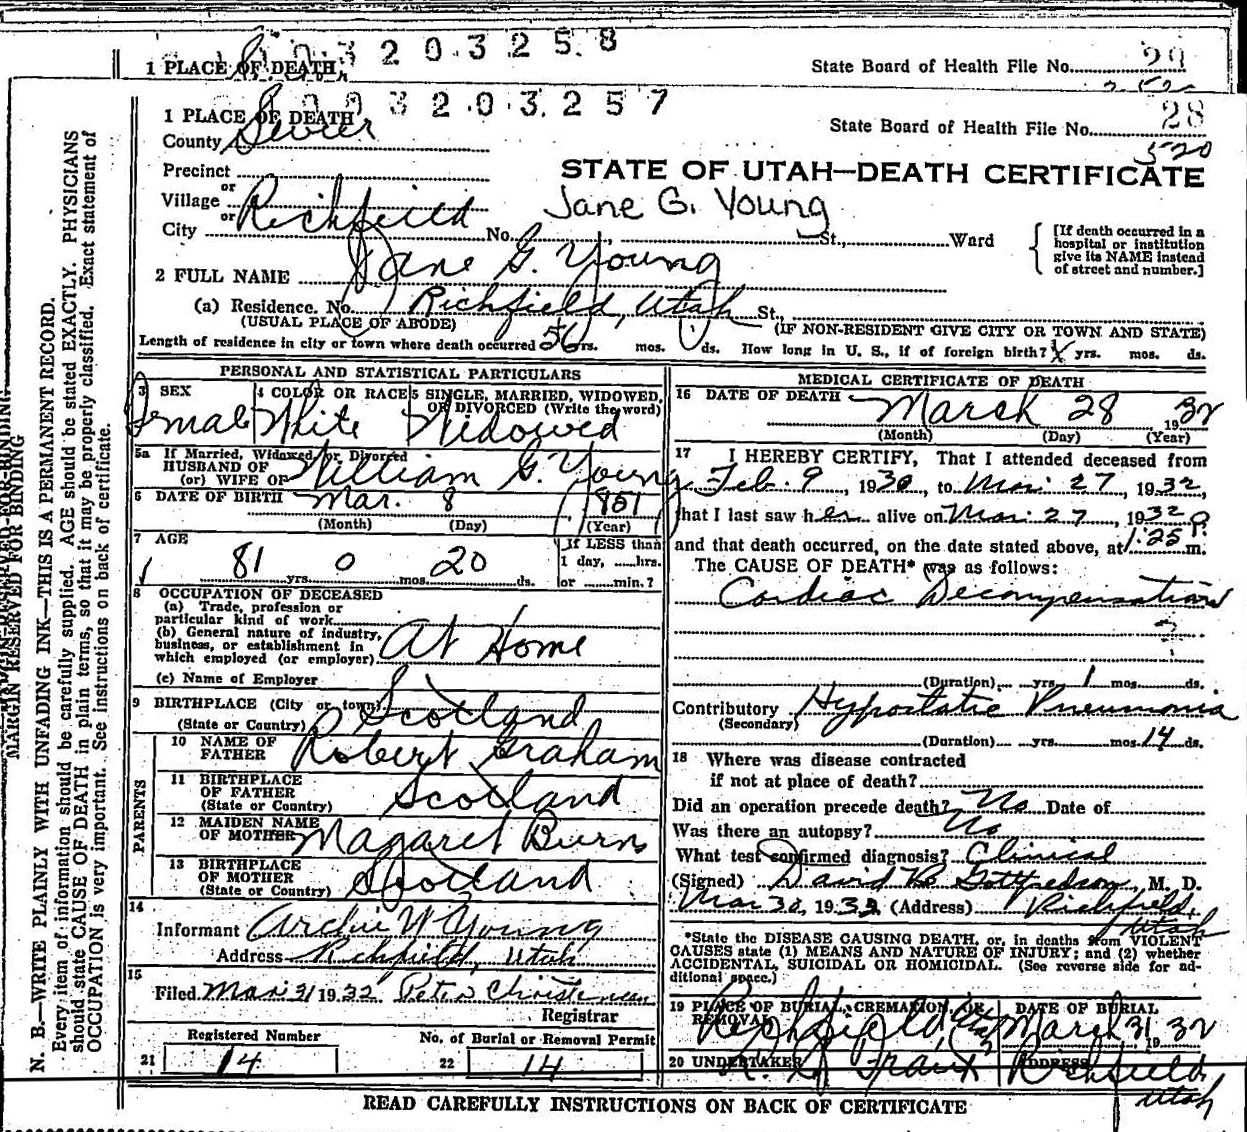 0 3 2 0 3 2 5 8
1 PLACE OF DEATH
State Board of Health File No. 29
0 3 2 0 3 2 5 7
1 PLACE OF DEATH
State Board of Health File No. 28
520
County Sevier
STATE OF UTAH—DEATH CERTIFICATE
Precinct
or
Village
or
City Richfield No. St., Ward
Jane G. Young
[If death occurred in a
hospital or institution
give its NAME instead
of street and number.]
2 FULL NAME Jane G. Young
(a) Residence. No. Richfield, Utah St.,
(USUAL PLACE OF ABODE) (IF NON-RESIDENT GIVE CITY OR TOWN AND STATE)
Length of residence in city or town where death occurred 56 yrs. mos. ds. How long in U. S., if of foreign birth? yrs. mos. ds.
PERSONAL AND STATISTICAL PARTICULARS
3 SEX 4 COLOR OR RACE 5 SINGLE, MARRIED, WIDOWED,
OR DIVORCED (Write the word)
Female White Widowed
5a If Married, Widowed, or Divorced
HUSBAND OF
(or) WIFE OF William G. Young
6 DATE OF BIRTH Mar. 8 1851
(Month) (Day) (Year)
7 AGE If LESS than
81 0 20 1 day, hrs.
yrs. mos. ds. or min.?
8 OCCUPATION OF DECEASED
(a) Trade, profession or
particular kind of work
(b) General nature of industry,
business, or establishment in
which employed (or employer) At Home
(c) Name of Employer
9 BIRTHPLACE (City or town)
(State or Country) Scotland
PARENTS
10 NAME OF
FATHER Robert Graham
11 BIRTHPLACE
OF FATHER
(State or Country) Scotland
12 MAIDEN NAME
OF MOTHER Magaret Burns
13 BIRTHPLACE
OF MOTHER
(State or Country) Scotland
14
Informant Archie W Young
Address Richfield, Utah
15
Filed Mar 31 1932 Peter Christensen
Registrar
Registered Number No. of Burial or Removal Permit
21 14 22 14
MEDICAL CERTIFICATE OF DEATH
16 DATE OF DEATH March 28 1932
(Month) (Day) (Year)
17 I HEREBY CERTIFY, That I attended deceased from
Feb. 9, 1930, to Mar. 27, 1932,
that I last saw her alive on Mar. 27, 1932
and that death occurred, on the date stated above, at 1:25 P. m.
The CAUSE OF DEATH* was as follows:
Cardiac Decompensation
(Duration) yrs. 1 mos. ds.
Contributory Hypostatic Pneumonia
(Secondary)
(Duration) yrs. mos. 14 ds.
18 Where was disease contracted
if not at place of death?
Did an operation precede death? No Date of
Was there an autopsy? No
What test confirmed diagnosis? Clinical
(Signed) David B. Gottfredson, M. D.
Mar 30, 1932 (Address) Richfield,
Utah
*State the DISEASE CAUSING DEATH, or, in deaths from VIOLENT
CAUSES state (1) MEANS AND NATURE OF INJURY; and (2) whether
ACCIDENTAL, SUICIDAL OR HOMICIDAL. (See reverse side for ad-
ditional space.)
19 PLACE OF BURIAL, CREMATION, OR
REMOVAL DATE OF BURIAL
Richfield, Utah March 31 1932
20 UNDERTAKER ADDRESS
Richfield,
Utah
READ CAREFULLY INSTRUCTIONS ON BACK OF CERTIFICATE
MARGIN RESERVED FOR BINDING
N. B.—WRITE PLAINLY WITH UNFADING INK—THIS IS A PERMANENT RECORD.
Every item of information should be carefully supplied. AGE should be stated EXACTLY. PHYSICIANS
should state CAUSE OF DEATH in plain terms, so that it may be properly classified. Exact statement of
OCCUPATION is very important. See instructions on back of certificate.